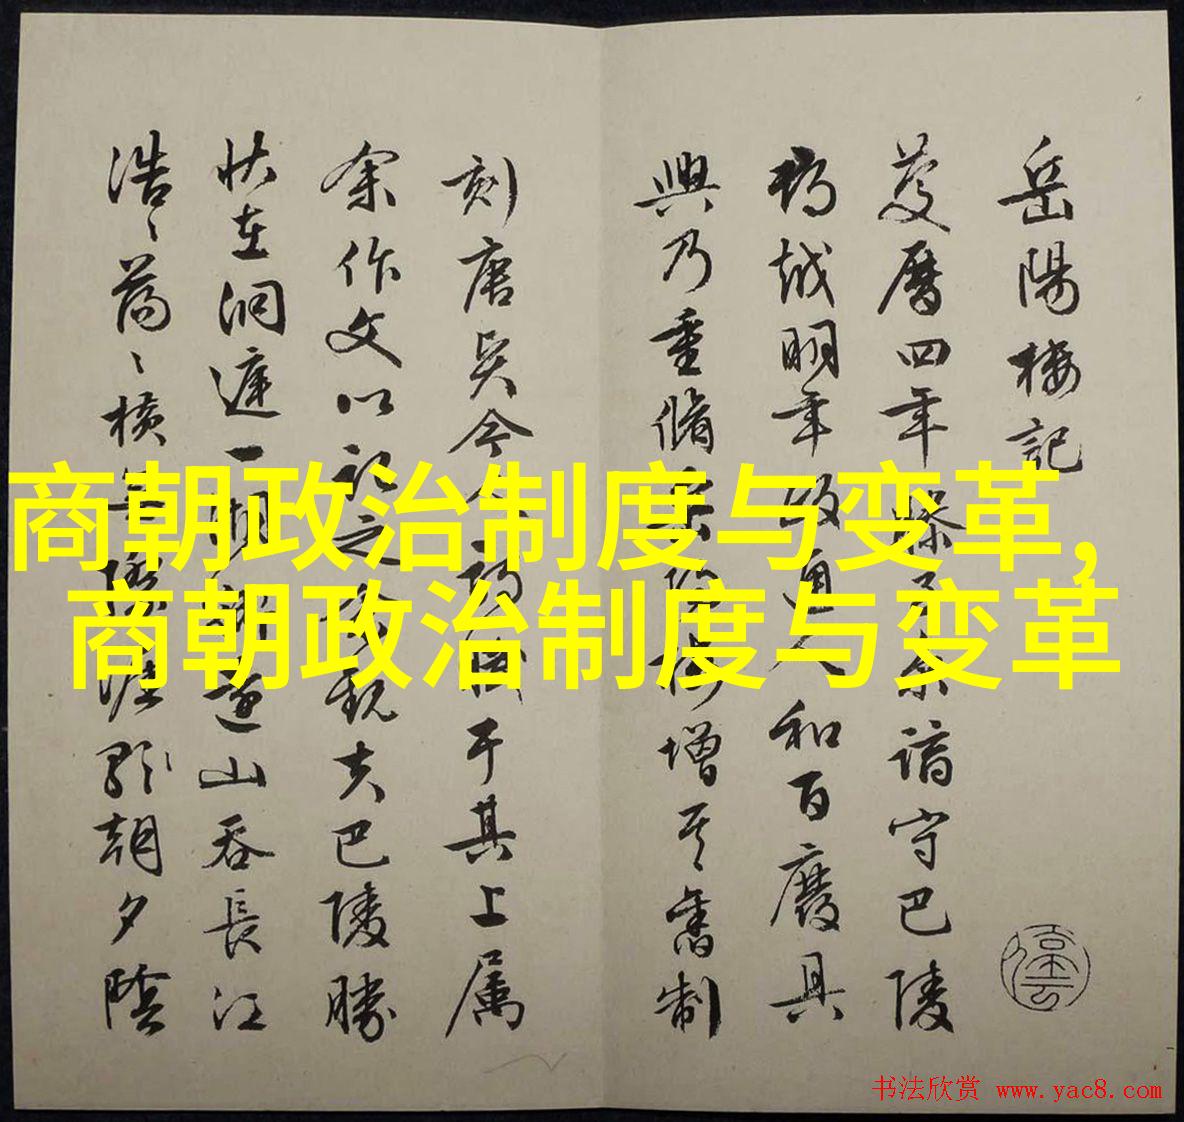 岳陽楼記
慶曆四年滕子京謫守巴陵
越明年政通人和百廢具
興乃重脩岳陽樓增其舊制
刻唐今人詩賦于其上属
余作文以記之予觀夫巴陵勝
状在洞庭一湖銜遠山吞長江
浩〻蕩〻横無際涯朝夕陰
商朝政治制度与变革,
商朝政治制度与变革
书法欣赏 www.yac8.com